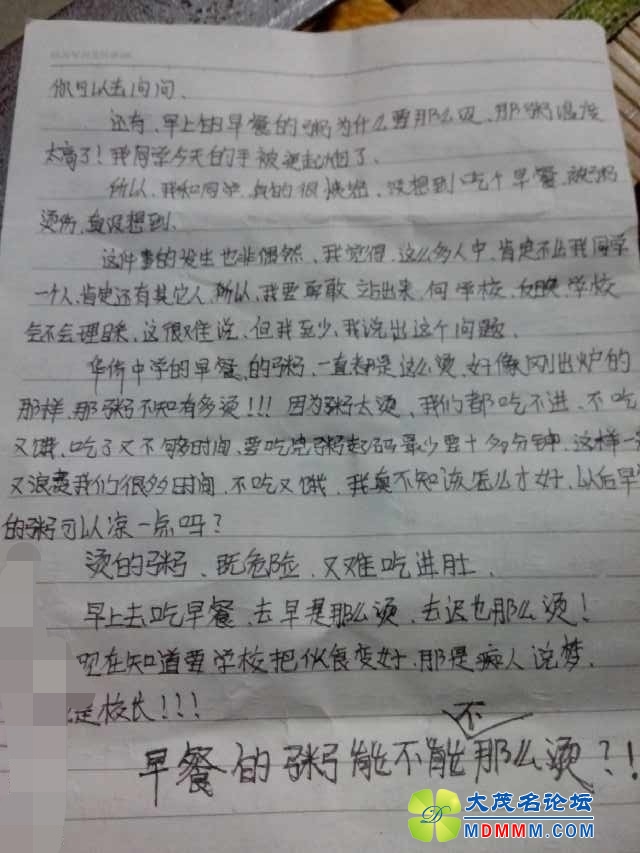 你可以去问问、
还有、早上的早餐的粥为什么要那么烫、那粥温度
太高了！我同学今天的手被烫起泡了、
所以、我和同学、真的很，没想到吃个早餐、被粥
烫伤、真没想到、
这件事的发生也非偶然、我觉得、这么多人中、肯定不止我同学
一个人、肯定还有其它人、所以、我要勇敢站出来、向学校、反映、学校
会不会理睬、这很难说、但我至少、我说出这个问题、
华侨中学的早餐、的粥、一直都是这么烫、好像刚出炉的
那样、那粥不知有多烫!!! 因为粥太烫、我们都吃不进、不吃
又饿、吃了又不够时间、要吃完粥起码最少要十多分钟、这样一
又浪费我们很多时间、不吃又饿、我真不知该怎么才好、以后早
的粥可以凉一点吗?
烫的粥、既危险、又难吃进肚、
早上去吃早餐、去早是那么烫、去迟也那么烫!
现在知道要学校把伙食变好、那是痴人说梦、
校长!!!
早餐的粥能不能不那么烫?!
大茂名论坛
MDMMM.COM